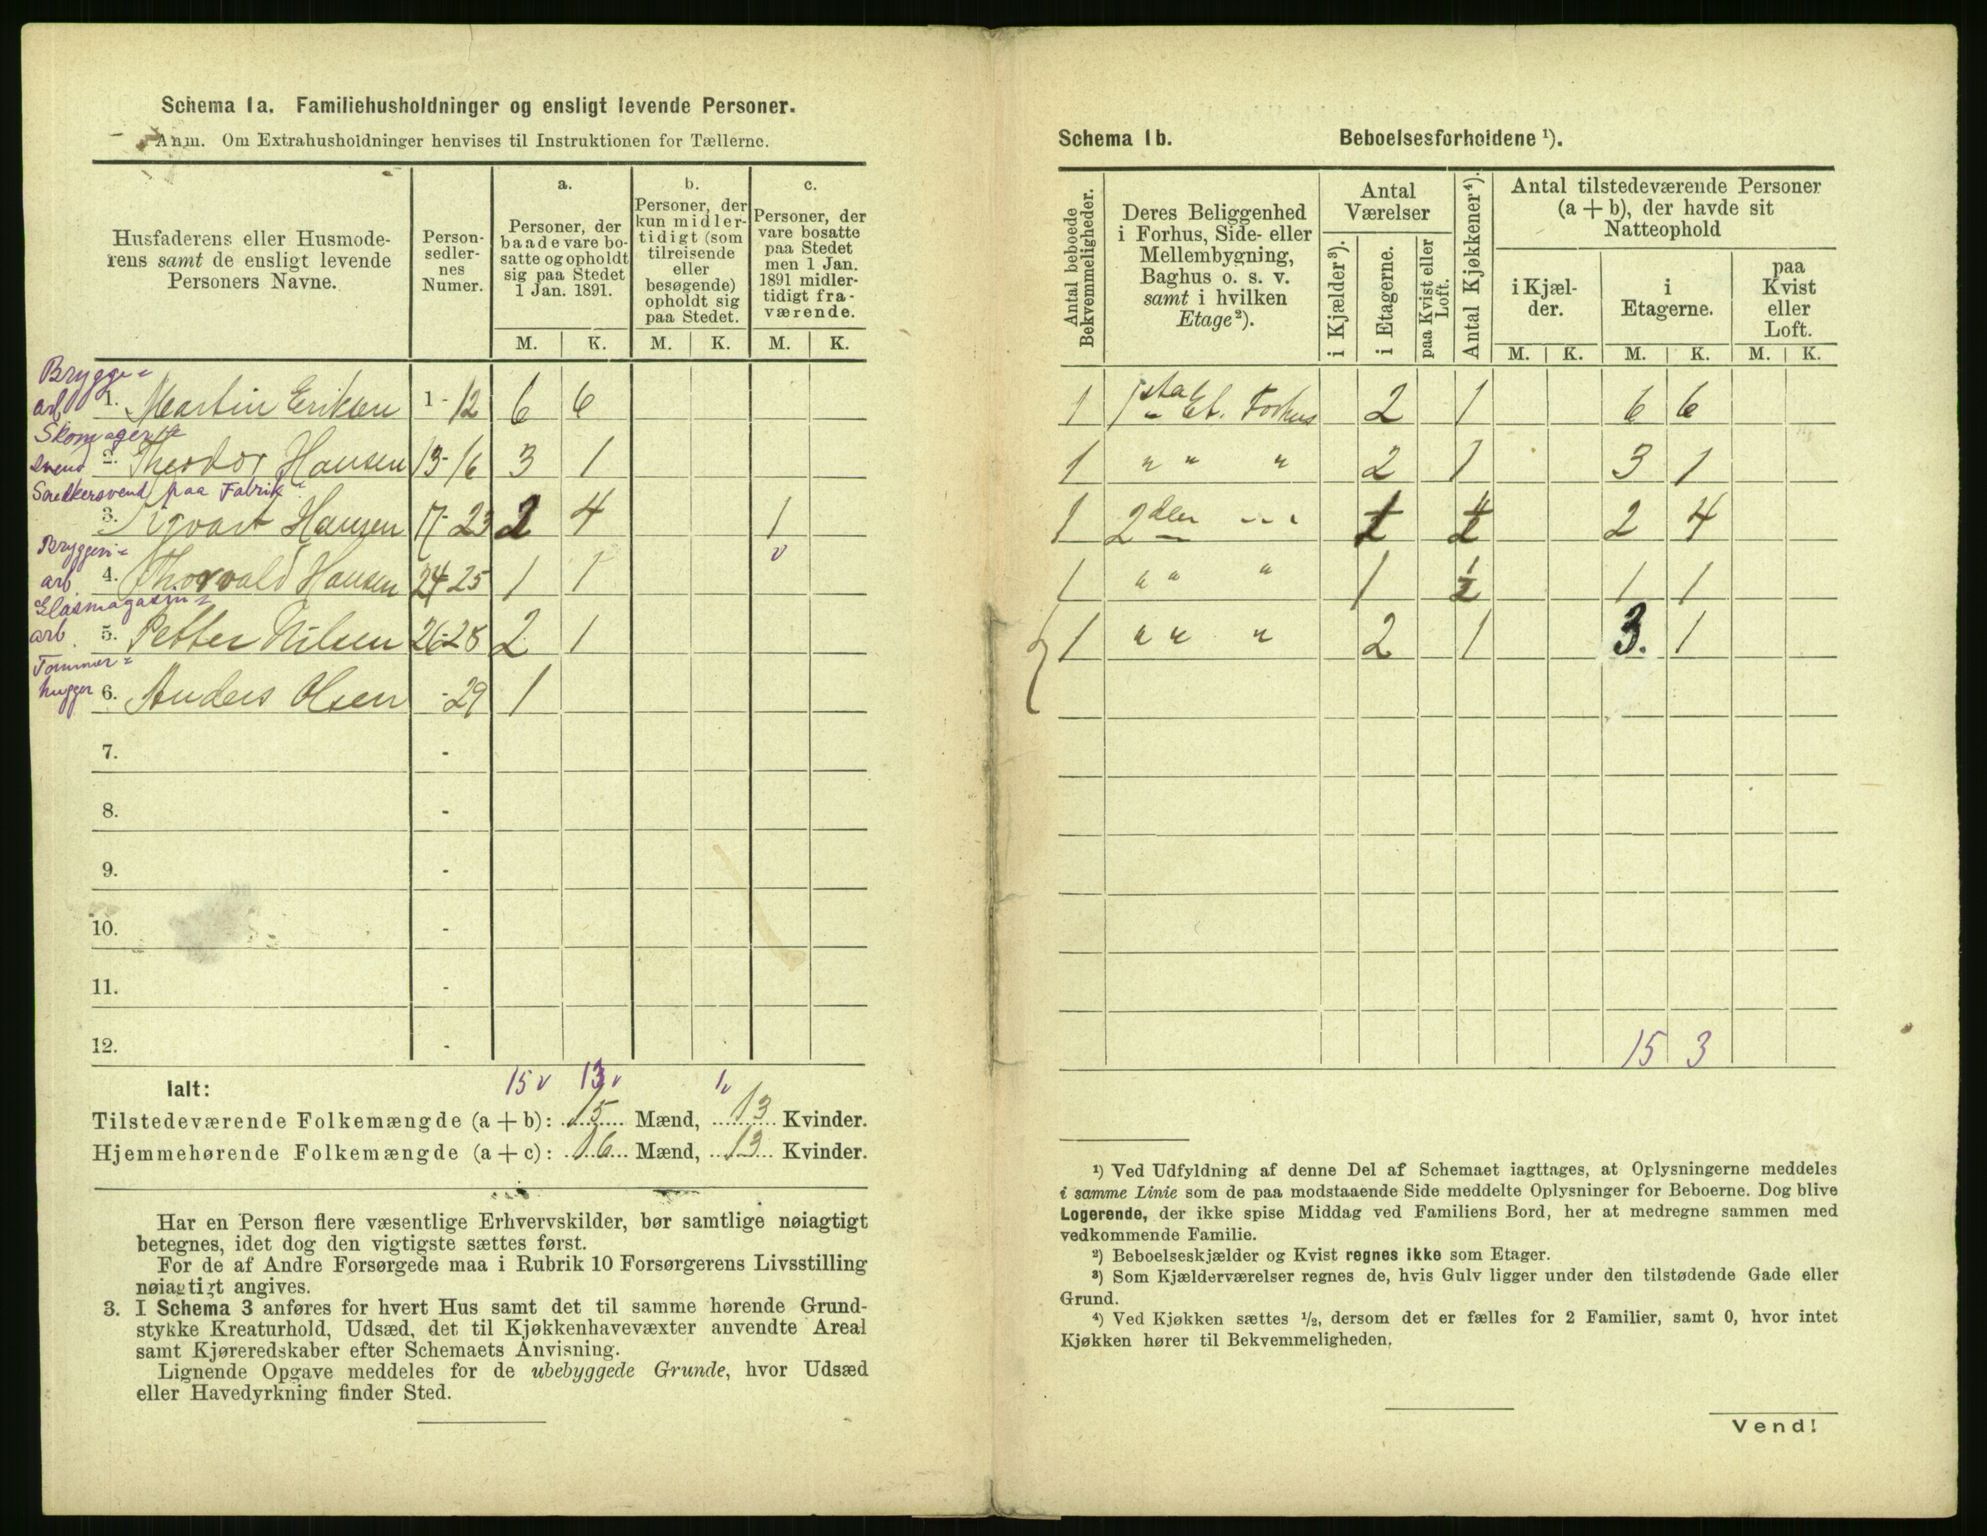 Schema 1a. Familiehusholdninger og ensligt levende Personer.
Anm. Om Extrahusholdninger henvises til Instruktionen for Tællerne.
Husfaderens eller Husmoderens samt de ensligt levende Personers Navne.
Personsedlernes Numer.
a. Personer, der baade vare bosatte og opholdt sig paa Stedet 1 Jan. 1891.
b. Personer, der kun midlertidigt (som tilreisende eller besøgende) opholdt sig paa Stedet.
c. Personer, der vare bosatte paa Stedet men 1 Jan. 1891 midlertidigt fraværende.
M. K. M. K. M. K.
Brygge=
arb 1. Martin Eriksen 1-12 6 6
Skomager=
svend 2. Theodor Hansen 13-16 3 1
Snedkersvend paa Fabrik
3. Sigvart Hansen 17-23 2 4 1
Bryggeri=
arb. 4. Thorvald Hansen 24-25 1 1 v
Glasmagasin=
arb. 5. Petter Nilsen 26-28 2 1
Tømmer=
hugger 6. Anders Olsen -29 1
7. -
8. -
9. -
10. -
11. -
12. -
Ialt: 15 v 13 v 1 v
Tilstedeværende Folkemængde (a + b): 15 Mænd, 13 Kvinder.
Hjemmehørende Folkemængde (a + c): 16 Mænd, 13 Kvinder.
Har en Person flere væsentlige Erhvervskilder, bør samtlige nøiagtigt
betegnes, idet dog den vigtigste sættes først.
For de af Andre Forsørgede maa i Rubrik 10 Forsørgerens Livsstilling
nøiagtigt angives.
3. I Schema 3 anføres for hvert Hus samt det til samme hørende Grund-
stykke Kreaturhold, Udsæd, det til Kjøkkenhavevæxter anvendte Areal
samt Kjøreredskaber efter Schemaets Anvisning.
Lignende Opgave meddeles for de ubebyggede Grunde, hvor Udsæd
eller Havedyrkning finder Sted.
Schema 1b. Beboelsesforholdene ¹).
Antal beboede Bekvemmeligheder.
Deres Beliggenhed i Forhus, Side- eller Mellembygning, Baghus o. s. v. samt i hvilken Etage²).
Antal Værelser
i Kjælder³).
i Etagerne.
paa Kvist eller Loft.
Antal Kjøkkener⁴).
Antal tilstedeværende Personer (a + b), der havde sit Natteophold
i Kjælder.
i Etagerne.
paa Kvist eller Loft.
M. K. M. K. M. K.
1 1sta Et. Forhus 2 1 6 6
1 " " " 2 1 3 1
1 2den - - - 1 ½ 2 4
1 " " " 1 ½ 1 1
1 " " " 2 1 3. 1
15 3
¹) Ved Udfyldning af denne Del af Schemaet iagttages, at Oplysningerne meddeles
i samme Linie som de paa modstaaende Side meddelte Oplysninger for Beboerne. Dog blive
Logerende, der ikke spise Middag ved Familiens Bord, her at medregne sammen med
vedkommende Familie.
²) Beboelseskjælder og Kvist regnes ikke som Etager.
³) Som Kjælderværelser regnes de, hvis Gulv ligger under den tilstødende Gade eller
Grund.
⁴) Ved Kjøkken sættes ½, dersom det er fælles for 2 Familier, samt 0, hvor intet
Kjøkken hører til Bekvemmeligheden.
Vend!